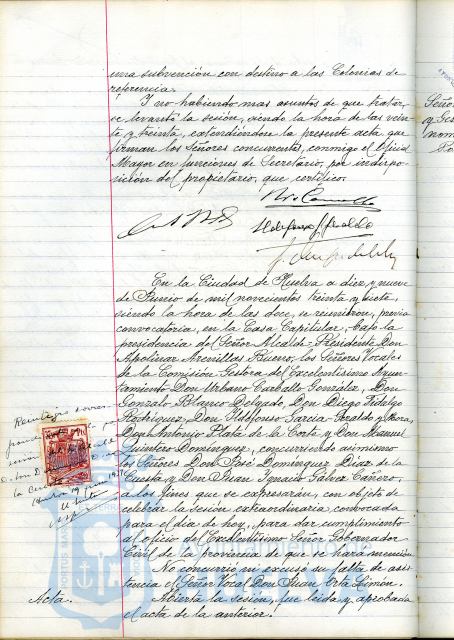 una subvención con destino a las Colonias de
referencia.
Y no habiendo mas asuntos de que tratar,
se levantó la sesión, siendo la hora de las vein-
te y treinta, extendiéndose la presente acta que
firman los Señores concurrentes, conmigo el Oficial
Mayor en funciones de Secretario, por indispo-
sición del propietario, que certifico.
En la Ciudad de Huelva a diez y nueve
de Junio de mil novecientos treinta y siete,
siendo la hora de las doce, se reunieron, previa
convocatoria, en la Casa Capitular, bajo la
presidencia del Señor Alcalde-Presidente Don
Apolinar Arenillas Bueno, los Señores Vocales
de la Comisión Gestora del Excelentísimo Ayun-
tamiento Don Urbano Carballo González, Don
Gonzalo Blanco Delgado, Don Diego Fidalgo
Rodríguez, Don Ildefonso García Geraldo y Mora,
Don Antonio Plata de la Corte y Don Manuel
Quintero Domínguez, concurriendo asimismo
los Señores Don José Domínguez Díaz de la
Cuesta y Don Juan Ignacio Gálvez Cañero,
a los fines que se expresarán, con objeto de
celebrar la sesión extraordinaria convocada
para el día de hoy, para dar cumplimiento
al oficio del Excelentísimo Señor Gobernador
Civil de la provincia de que se hará mención.
No concurrió ni excusó su falta de asis-
tencia el Señor Vocal Don Juan Orta Limón.
Acta. Abierta la sesión, fue leída y aprobada
el acta de la anterior.
Reintegro corres-